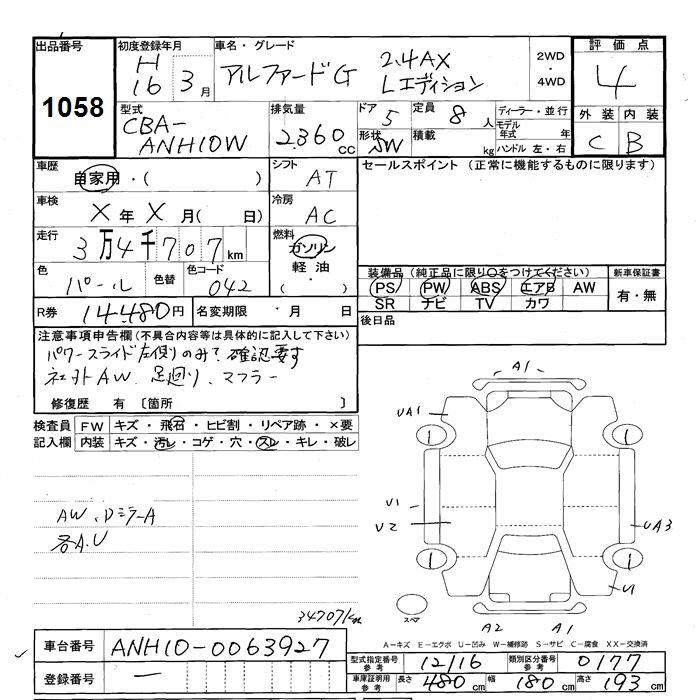 出品番号
1058
初度登録年月
H
16 3月
車名・グレード
アルファードG 2.4AX
Lエディション
2WD
・
4WD
評価点
4
外装 内装
C B
型式
CBA-
ANH10W
排気量
2360cc
ドア 5
形状 SW
定員 8人
積載 kg
ディーラー・並行
モデル年式 年
ハンドル 左・右
車歴
自家用・( )
シフト
AT
セールスポイント (正常に機能するものに限ります)
車検
X年X月( 日)
冷房
AC
走行
3万4千707km
燃料
ガソリン
軽油・
( )
色
パール
色替
色コード
042
装備品(純正品に限り○をつけてください)
PS PW ABS エアB AW
SR ナビ TV カワ
新車保証書
有・無
R券 14480円
名変期限 ・ 月 日
後日品
注意事項申告欄(不具合内容等は具体的に記入して下さい)
パワースライド左側りのみ?確認要す
社外AW、足回り、マフラー
修復歴 有 〔箇所 〕
検査員 FW キズ・飛石・ヒビ割・リペア跡・×要
記入欄 内装 キズ・汚レ・コゲ・穴・スレ・キレ・破レ
AW、DミラーA
各A.U
34707km
A1
UA1
1
1
U1
U2
UA3
1
1
U1
スペア
A2 A1
A-キズ E-エクボ U-凹み W-補修跡 S-サビ C-腐食 XX-交換済
車台番号 ANH10-0063927
登録番号 一
型式指定番号
参考
12116
類別区分番号
参考
0177
車庫証明用
参考
長さ 480cm 幅 180cm 高さ 193cm